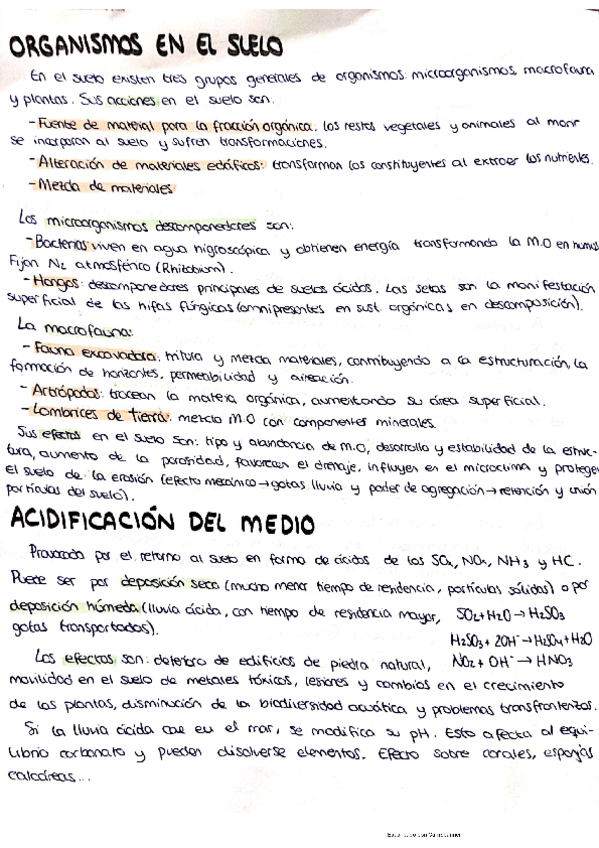 ORGANISMOS EN EL SUELO
En el suelo existen tres grupos generales de organismos: microorganismos, macrofauna
y plantas. Sus acciones en el suelo son:
- Fuente de material para la fracción orgánica: los restos vegetales y animales al morir
se incorporan al suelo y sufren transformaciones.
- Alteración de materiales edáficos: transforman los constituyentes al extraer los nutrientes.
- Mezcla de materiales
Los microorganismos descomponedores son:
- Bacterias: viven en agua higroscópica y obtienen energía transformando la M.O en humus
Fijan N2 atmosférico (Rhizobium).
- Hongos: descomponedores principales de suelos ácidos. Las setas son la manifestación
superficial de las hifas fúngicas (omnipresentes en sust. orgánicas en descomposición).
La macrofauna:
- Fauna excavadora: tritura y mezcla materiales, contribuyendo a la estructuración, la
formación de horizontes, permeabilidad y aireación.
- Artrópodos: trocean la materia orgánica, aumentando su área superficial.
- Lombrices de tierra: mezcla M.O con componentes minerales.
Sus efectos en el suelo son: tipo y abundancia de M.O, desarrollo y estabilidad de la estruc-
tura, aumento de la porosidad, favorecen el drenaje, influyen en el microclima y protegen
el suelo de la erosión (efecto mecánico → gotas lluvia y poder de agregación → retención y unión
partículas del suelo).
ACIDIFICACIÓN DEL MEDIO
Provocada por el retorno al suelo en forma de ácidos de los SOx, NOx, NH3 y HC.
Puede ser por deposición seca (mucho menor tiempo de residencia, partículas sólidas) o por
deposición húmeda (lluvia ácida, con tiempo de residencia mayor, SO2 + H2O → H2SO3
gotas transportadas). H2SO3 + 2OH⁻ → H2SO4 + H2O
Los efectos son: deterioro de edificios de piedra natural, NO2 + OH⁻ → HNO3
movilidad en el suelo de metales tóxicos, lesiones y cambios en el crecimiento
de las plantas, disminución de la biodiversidad acuática y problemas transfronterizos.
Si la lluvia ácida cae en el mar, se modifica su pH. Esto afecta al equi-
librio carbonato y pueden disolverse elementos. Efecto sobre corales, esponjas
calcáreas...